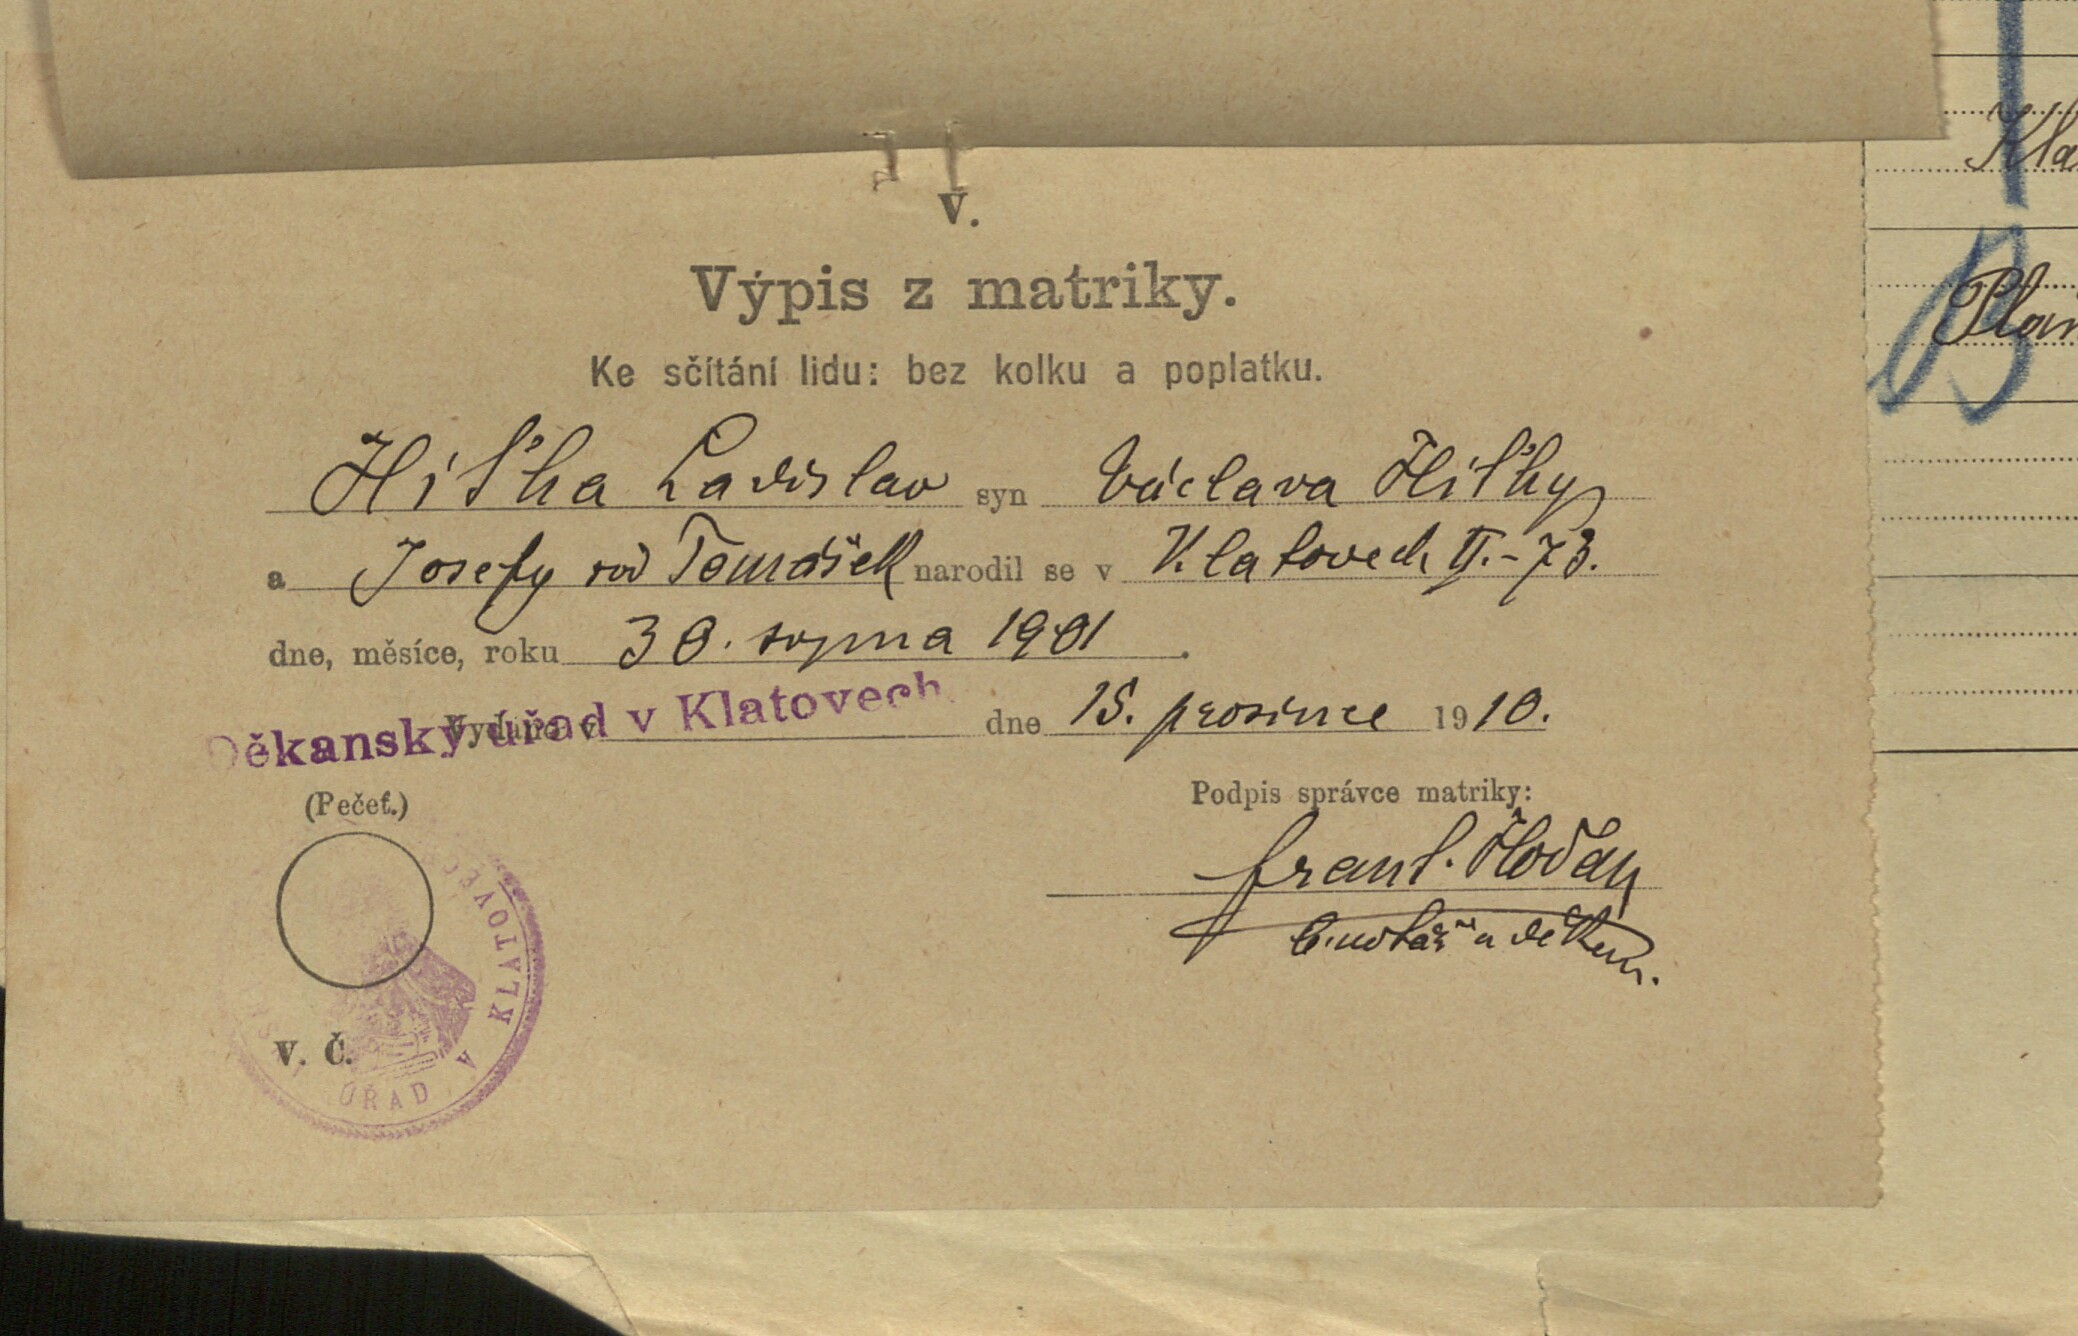 V.
Výpis z matriky.
Ke sčítání lidu: bez kolku a poplatku.
Ladislav syn Václava
a Josefy roz Tomášek narodil se v Klatovech II.-73.
dne, měsíce, roku 30. srpna 1901.
Vydáno v Děkanský úřad v Klatovech dne 15. prosince 1910.
(Pečeť.)
Podpis správce matriky:
Frant.
b. notář a děkan.
V. Č.
ÚŘAD V KLATOVEC
Kla
Plán